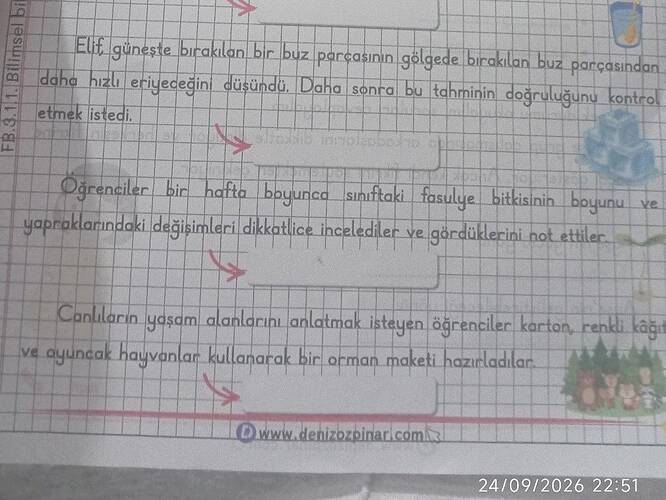 FB.3.1.1. Bilimsel bi
Elif, güneşte bırakılan bir buz parçasının gölgede bırakılan buz parçasından
daha hızlı eriyeceğini düşündü. Daha sonra bu tahminin doğruluğunu kontrol
etmek istedi.
Öğrenciler bir hafta boyunca sınıftaki fasulye bitkisinin boyunu ve
yapraklarındaki değişimleri dikkatlice incelediler ve gördüklerini not ettiler.
Canlıların yaşam alanlarını anlatmak isteyen öğrenciler karton, renkli kâğıt
ve oyuncak hayvanlar kullanarak bir orman maketi hazırladılar.
D www.denizozpinar.com
24/09/2026 22:51